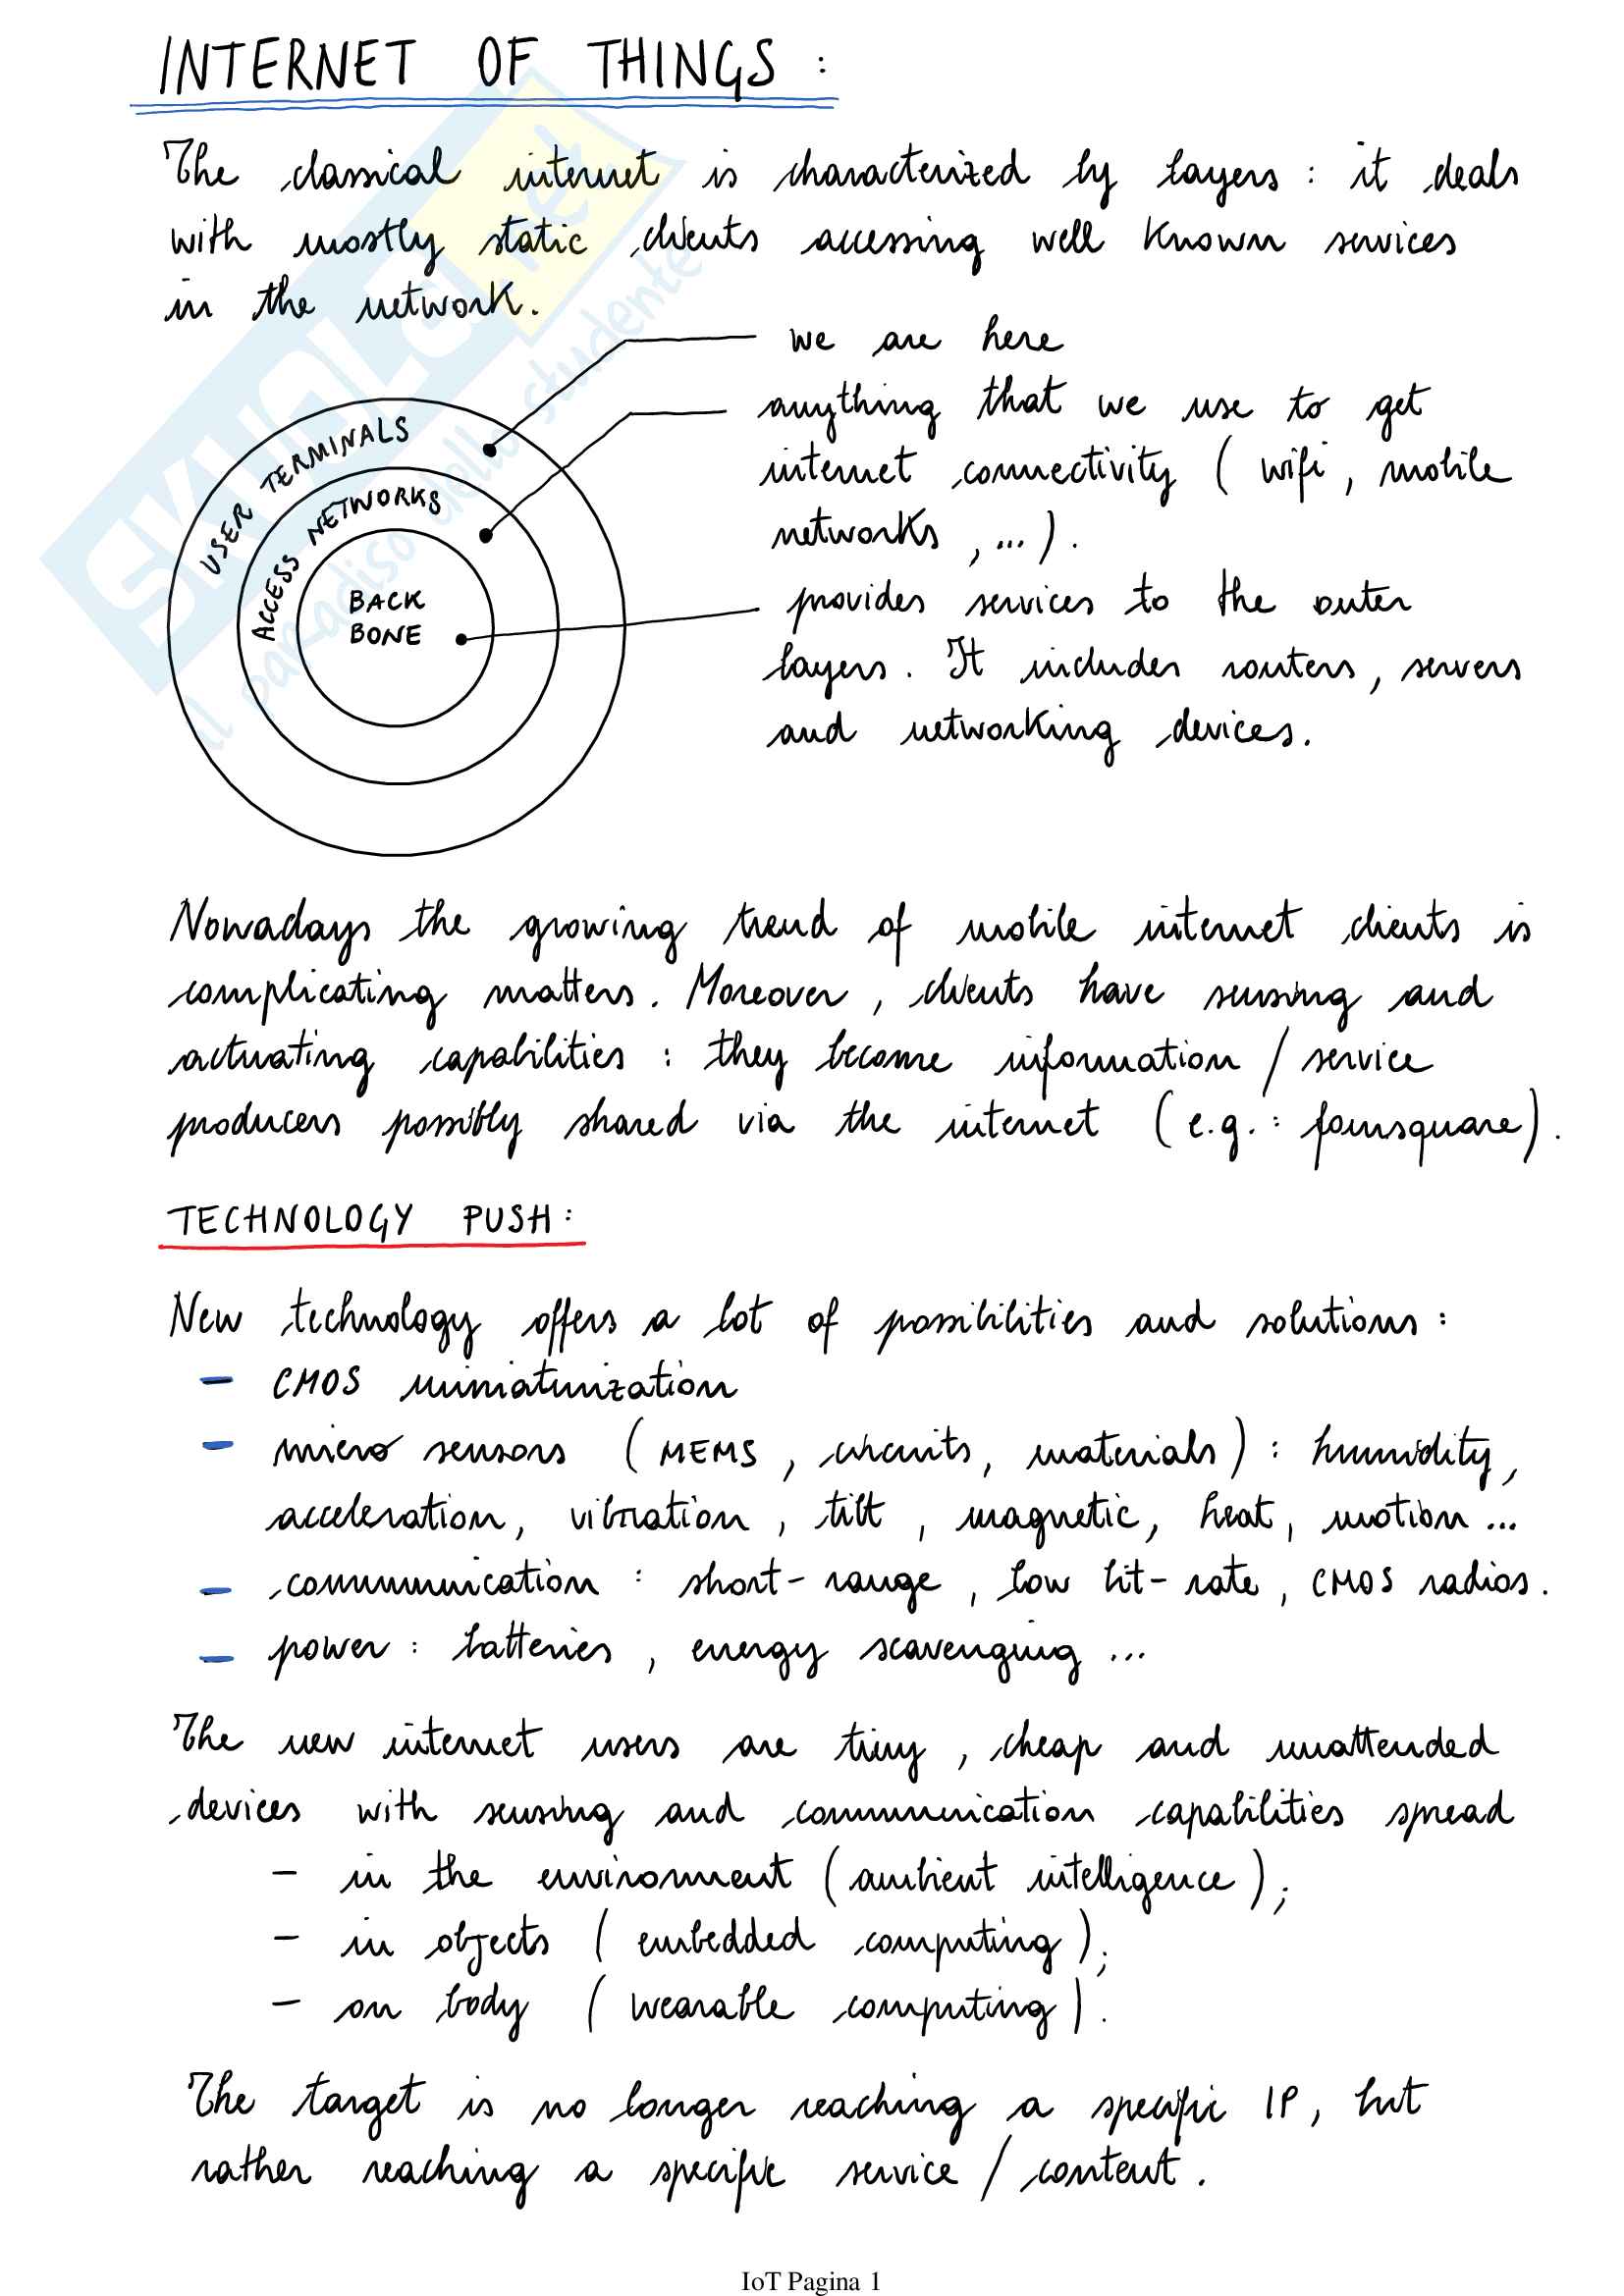 INTERNET OF THINGS :
The classical internet is characterized by layers : it deals
with mostly static clients accessing well known services
in the network.
we are here
anything that we use to get
internet connectivity ( wifi , mobile
networks , ... ) .
provides services to the outer
layers . It includes routers , servers
and networking devices .
USER TERMINALS
ACCESS NETWORKS
BACK
BONE
Nowadays the growing trend of mobile internet clients is
complicating matters . Moreover , clients have sensing and
actuating capabilities : they become information / service
producers possibly shared via the internet ( e.g. : foursquare ) .
TECHNOLOGY PUSH :
New technology offers a lot of possibilities and solutions :
– CMOS miniaturization
– micro sensors ( MEMS , circuits , materials ) : humidity ,
acceleration , vibration , tilt , magnetic , heat , motion ...
– communication : short - range , low bit - rate , CMOS radios .
– power : batteries , energy scavenging ...
The new internet users are tiny , cheap and unattended
devices with sensing and communication capabilities spread
– in the environment ( ambient intelligence ) ;
– in objects ( embedded computing ) ;
– on body ( wearable computing ) .
The target is no longer reaching a specific IP , but
rather reaching a specific service / content .
IoT Pagina 1
SKUOLA.net
il paradiso dello studente